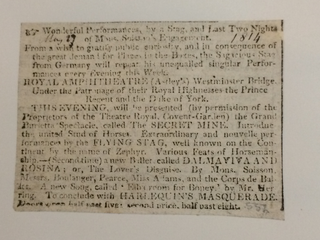 Wonderful Performances, by a Stag, and Last Two Nights
May 27 of Mons. Soisson's Engagement. 1814
From a wish to gratify public curiosity, and in consequence of
the great demand for Places in the Boxes, the Sagacious Stag
from Germany will repeat his unequalled singular Perfor-
mances every Evening this Week.
ROYAL AMPHITHEATRE (Astley's) Westminster Bridge.
Under the Patronage of their Royal Highnesses the Prince
Regent and the Duke of York.
THIS EVENING, will be presented (by permission of the
Proprietors of the Theatre Royal, Covent-Garden) the Grand
Burletta Spectacle, called The SECRET MINE. Introduc-
the united Stud of Horses. Extraordinary and nouvelle per-
formances by the FLYING STAG, well known on the Con-
tinent by the name of Zephyr. Various Feats of Horseman-
ship.—(Second time) a new Ballet, called DALMAYIVA AND
ROSINA; or, The Lover's Disguise. By Mons. Soisson,
Messrs. Boulanger, Pearce, Miss Adams, and the Corps de Bal-
A new Song, called 'Elba room for Boney,' by Mr. Her-
ring. To conclude with HARLEQUIN'S MASQUERADE.
Doors open half past five; second price, half past eight.